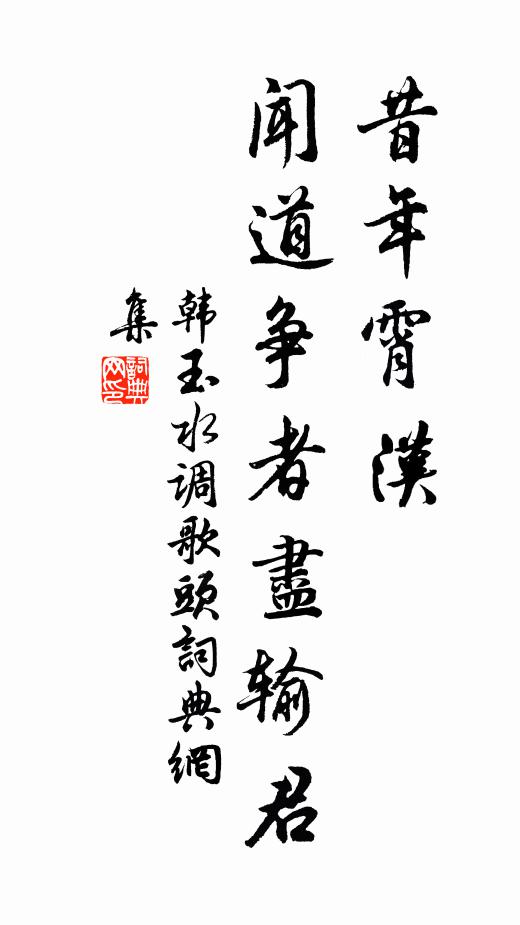 昔年霄漢
闻道争者盡输君
韩玉水调歌頭詞典網
集
詞典
网印